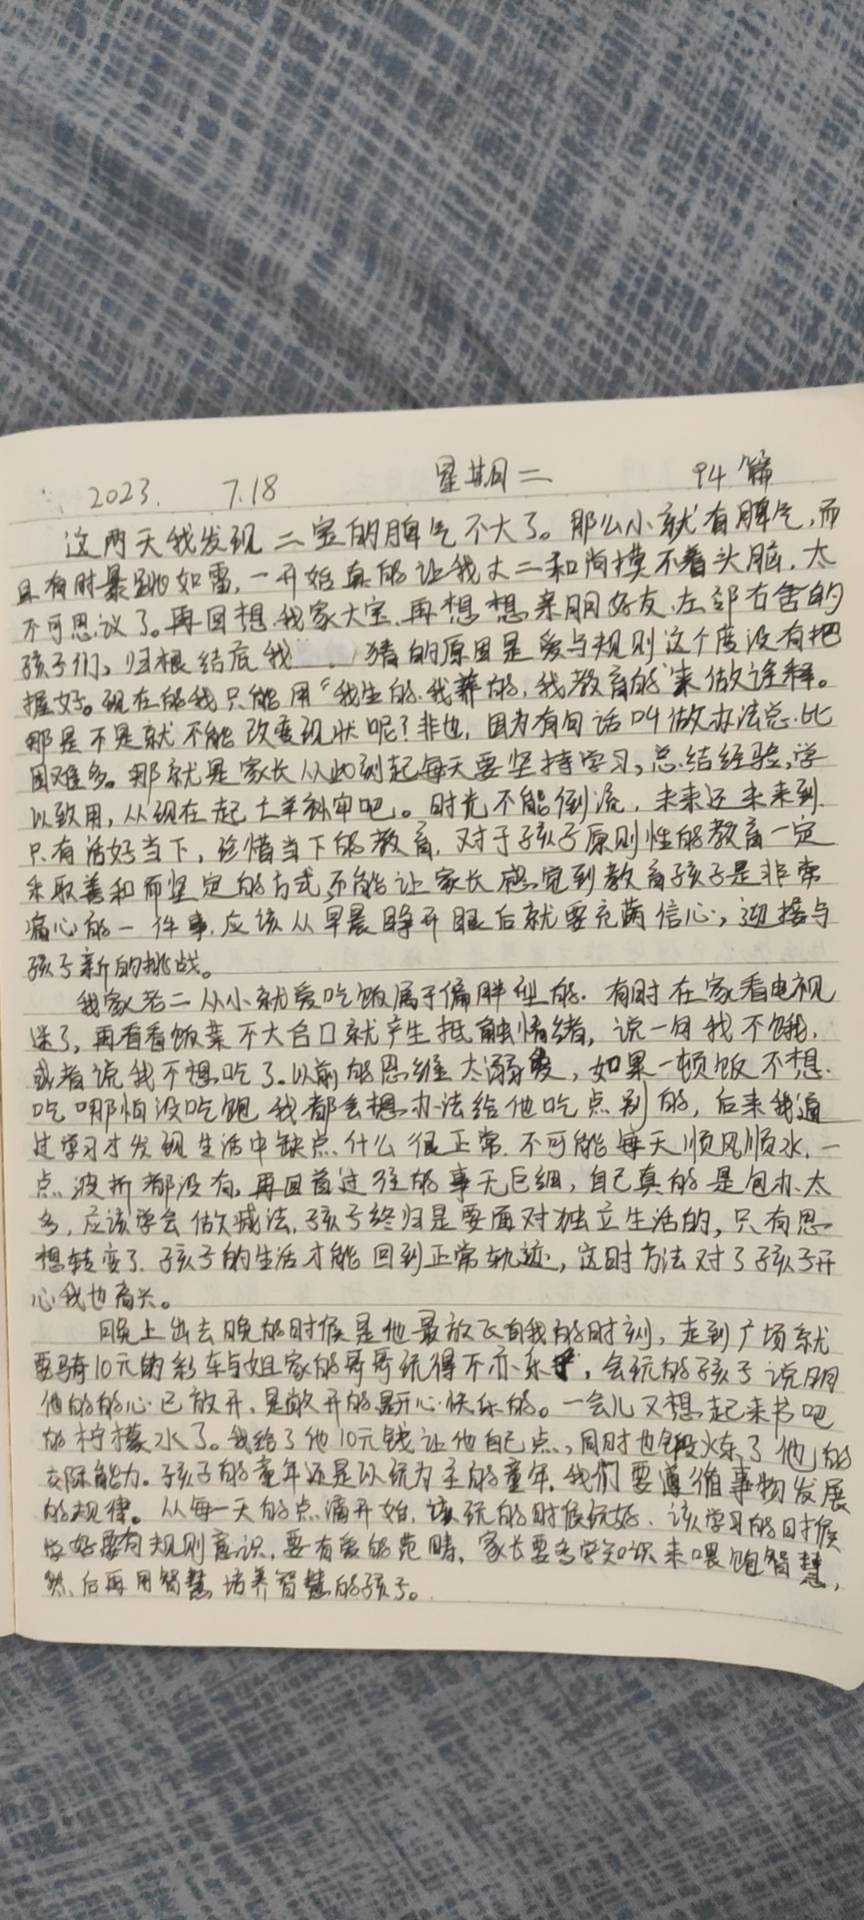 2023. 7.18 星期二 94篇
这两天我发现二宝的脾气不大了。那么小就有脾气,而
且有时暴跳如雷,一开始真的让我丈二和尚摸不着头脑,太
不可思议了。再回想我家大宝,再想想亲朋好友,左邻右舍的
孩子们,归根结底我 猜的原因是爱与规则这个度没有把
握好。现在的我只能用“我生的,我养的,我教育的”来做诠释。
那是不是就不能改变现状呢?非也,因为有句话叫做办法总比
困难多。那就是家长从此刻起每天要坚持学习,总结经验,学
以致用,从现在起亡羊补牢吧。时光不能倒流,未来还未来到
只有活好当下,珍惜当下的教育,对于孩子原则性的教育一定
采取善和而坚定的方式,不能让家长感觉到教育孩子是非常
痛心的一件事,应该从早晨睁开眼后就要充满信心,迎接与
孩子新的挑战。
我家老二从小就爱吃饭属于偏胖型的.有时在家看电视
迷了,再看看饭菜不大合口就产生抵触情绪,说一句我不饿,
或者说我不想吃了。以前的思维太溺爱,如果一顿饭不想
吃哪怕没吃饱我都会想办法给他吃点别的,后来我通
过学习才发现生活中缺点什么很正常.不可能每天顺风顺水,一
点波折都没有,再回首过往的事无巨细,自己真的是包办太
多,应该学会做减法,孩子终归是要面对独立生活的,只有思
想转变了.孩子的生活才能回到正常轨迹,这时方法对了孩子开
心我也高兴。
晚上出去晚的时候是他最放飞自我的时刻,走到广场就
要骑10元的彩车与姐家的哥哥玩得不亦乐乎,会玩的孩子说明
他的的心已放开,是敞开的是开心快乐的。一会儿又想起来书吧
的柠檬水了。我给了他10元钱让他自己点,同时也锻炼了他的
交际能力。孩子的童年还是以玩为主的童年,我们要遵循事物发展
的规律。从每一天的点滴开始,该玩的时候玩好.该学习的时候
学好要有规则意识,要有爱的范畴,家长要多学知识来喂饱智慧,
然后再用智慧培养智慧的孩子。